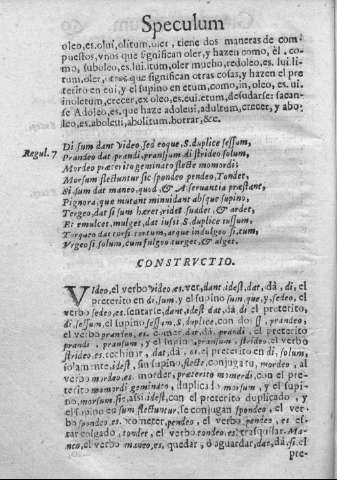 Speculum
oleo,es.olui,olitum,oler, tiene dos maneras de com
puestos, vnos que significan oler, y hazen como, èl , co-
mo, suboleo,es.lui.itum,oler mucho,redoleo,es. lui.li
tum,oler, otros que significan otras cosas,y hazen el pre
terito en eui,y el supino en etum,como,in, oleo, es. ui.
inoletum,crecer,ex oleo,es.eui.etum,desusarse: sacan-
se Adoleo,es.que haze adoleui,adultum,crecer, y abo-
leo,es.aboleui,abolitum.borrar,&c.
Regul. 7 Di sum dant Video,sed eoque.S.duplice sessum,
Prandeo dat prandi,pransum di strideo solum,
Mordeo præterito geminato flecte momordi;
Morsum flectuntur sic spondeo pendeo,Tondet,
Si sum dat maneo,quod,& A seruantia præstant,
Pignora,quæ mutant minuidant absque supino,
Tergeo,dat si sum hæret,ridet suadet,& ardet,
Et emulcet,mulget,dat iussi .S.duplice iussum,
Torqueo dat torsi tortum,atque indulgeo si,tum,
Vrgeo si solum,cum fulgeo turget,& alget.
CONSTRVCTIO.
Video,el verbo video.es.ver,dant.idest,dat,dà , di,el
preterito en di,sum, y el supino sum,que,y,sedeo, el
verbo sedeo,es.sentarse,dant,idest, dat, dà di el preterito
di,sessum, el supino sessum.S.duplice,con dos ss , prandeo,
el verbo prandeo, es. comer,dat,dà, prandi, el preterito
prandi , pransum, y el supino pransum , strideo,el verbo
strideo,es.rechinar , dat, dà , di, el preterito en di, solum,
solamente,idest, sin supino,flecte,conjugatu, mordeo, al
verbo mordeo.es. morder, præterito momordi,con el pre-
terito momordi geminato, duplicado morsum , y el supi-
no,morsum,sic,assi,idest,con el preterito duplicado , y
el supino en sum flectuntur,se conjugan spondeo , el ver-
bo spondeo,es. prometer,pendeo, el verbo pendeo , es es-
tar colgado , tondet, el verbo tondeo,es.trasquilar.Ma-
neo,el verbo maneo,es, quedar, ò aguardar,dat,dà,si.el
pre-